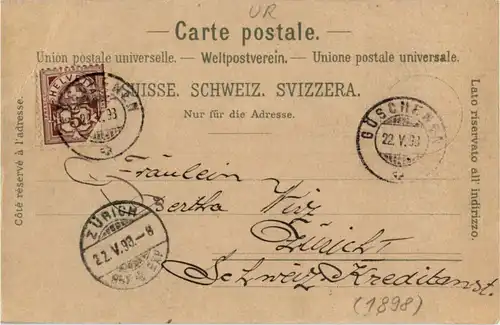 UR
Carte postale.
Union postale universelle. — Weltpostverein. — Unione postale universale.
HELVETIA
5
UISSE. SCHWEIZ. SVIZZERA.
Nur für die Adresse.
Côté réservé à l'adresse.
Lato riservato all' indirizzo.
GÖSCHENEN
22.V.98
Fräulein
Bertha
Zürich
Schweiz. Kreditanst.
ZÜRICH
22.V.98.-8
(1898)